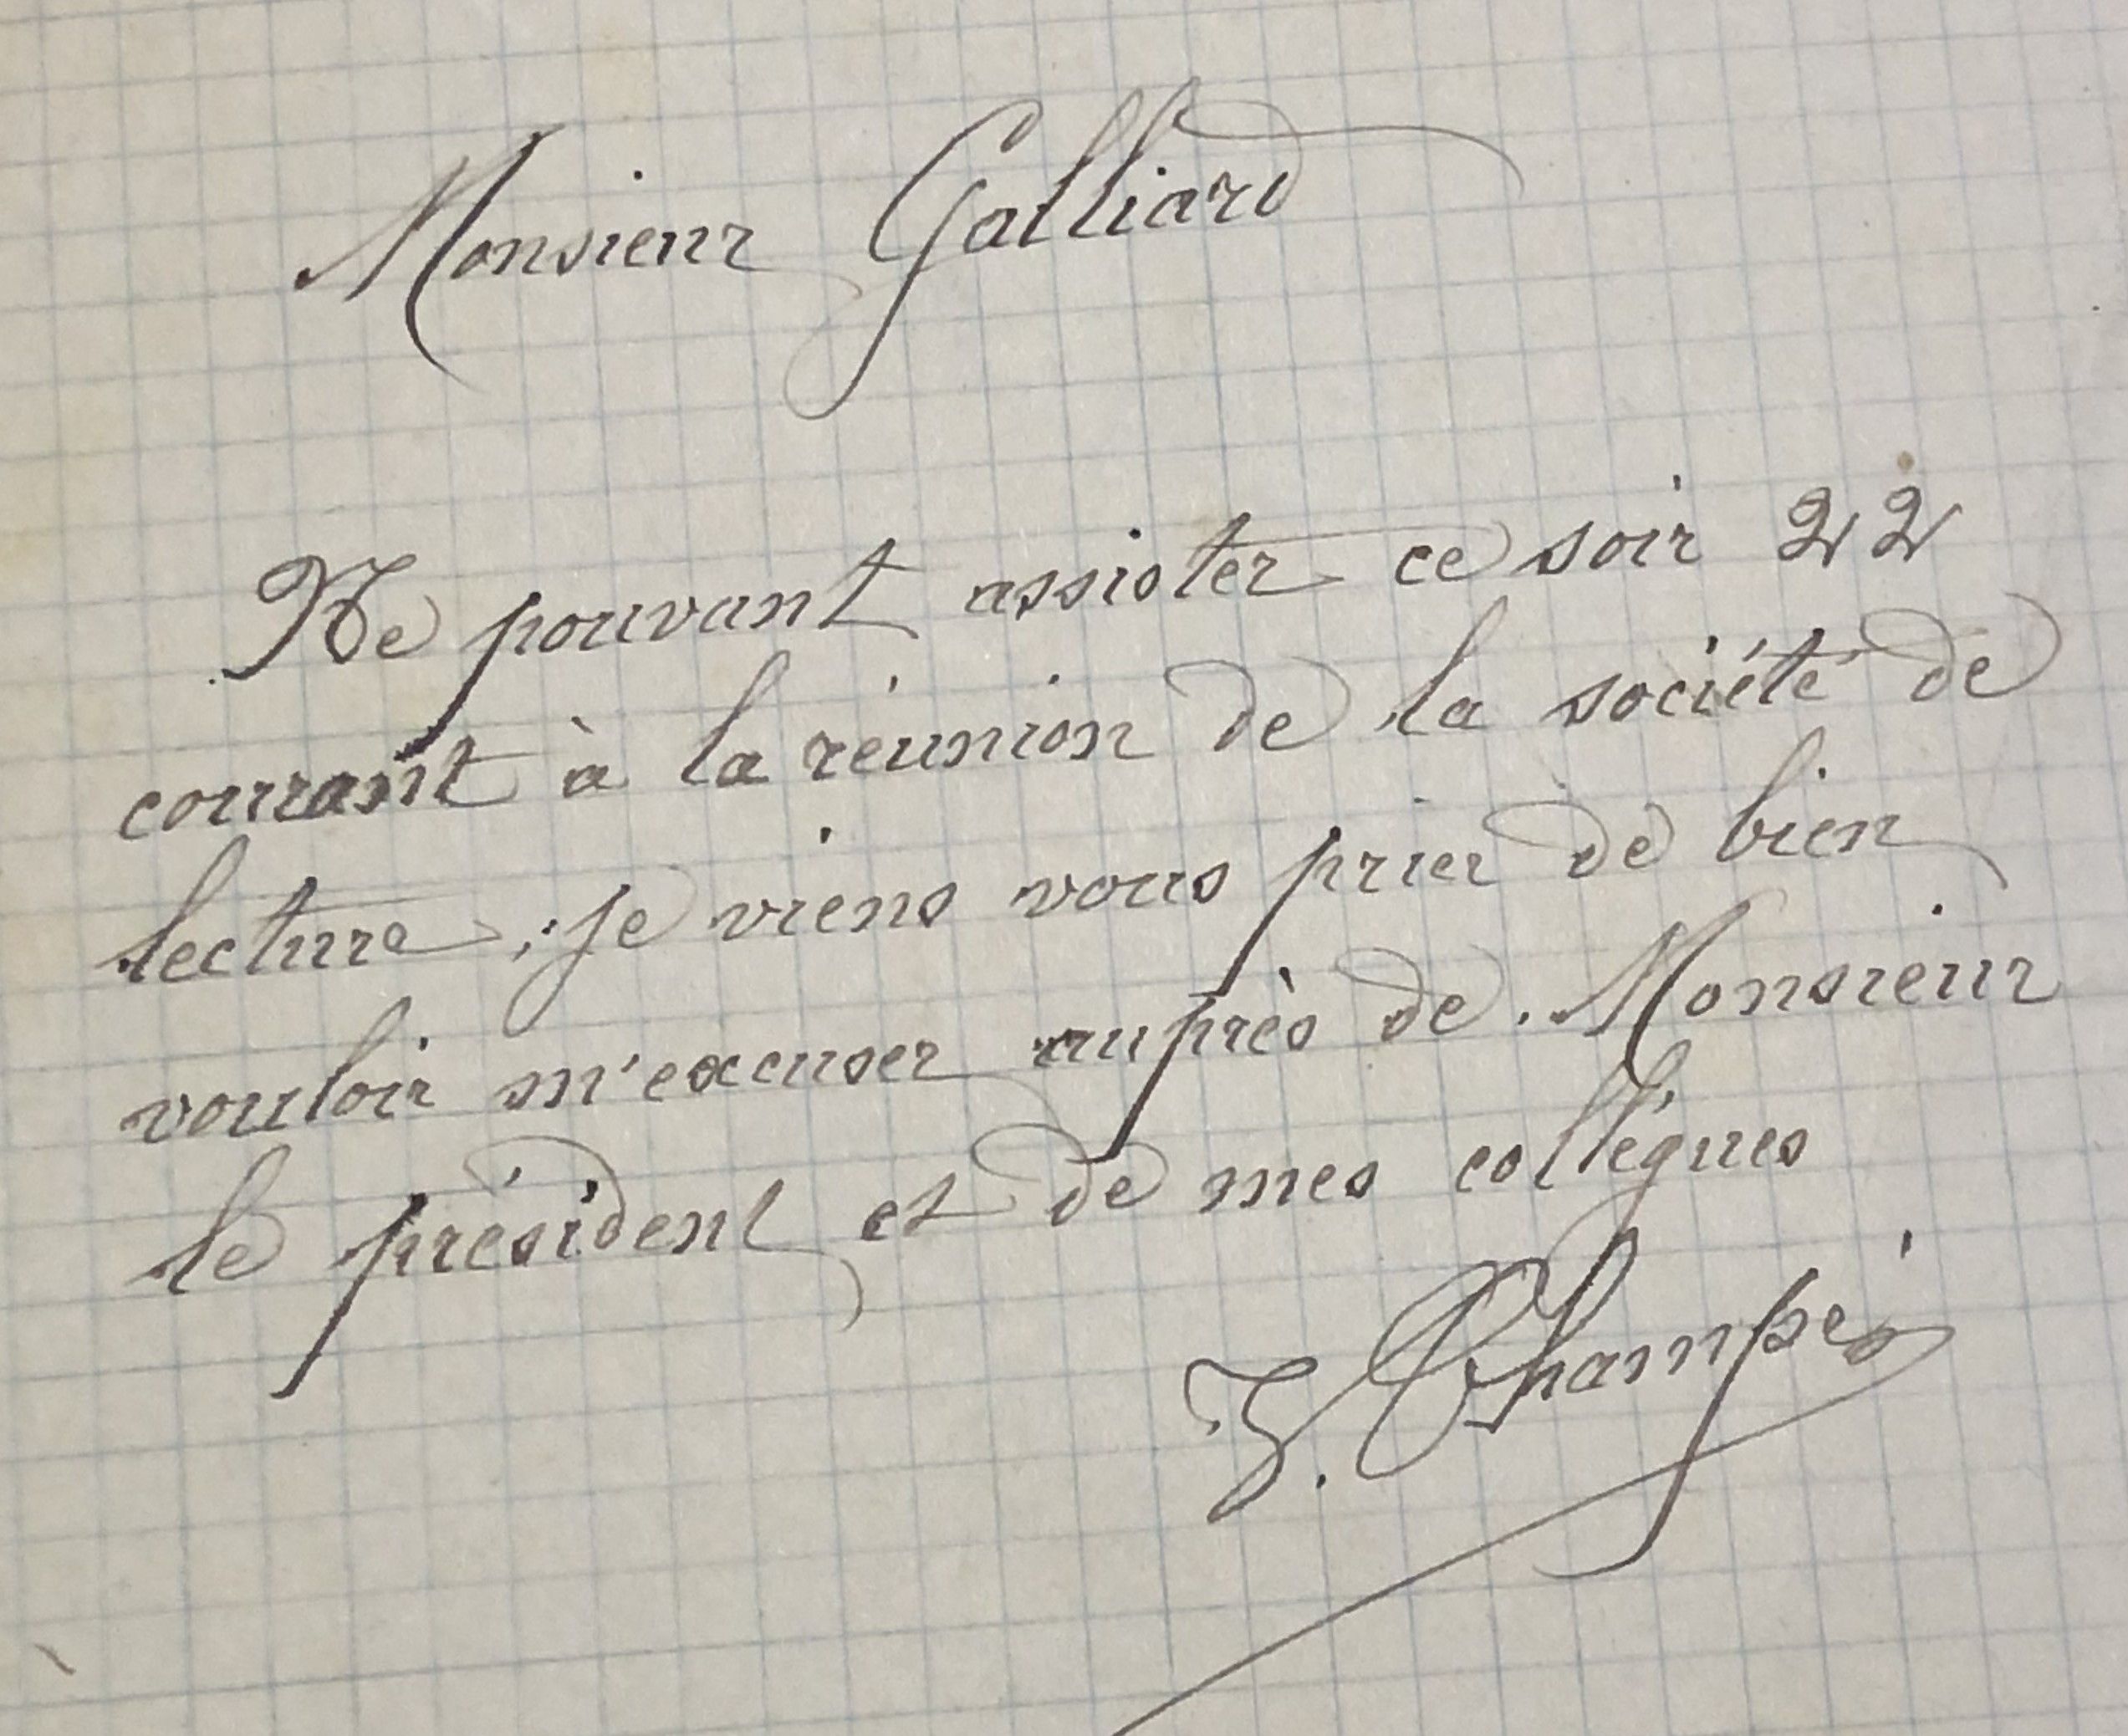 Monsieur Galliard
Ne pouvant assister ce soir 22
courant à la réunion de la société de
lecture, je viens vous prier de bien
vouloir m'excuser auprès de Monsieur
le président et de mes collègues
Champé